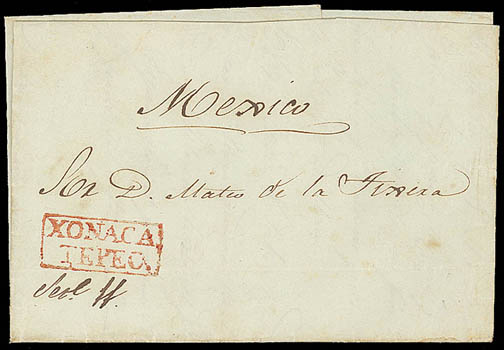 Mexico
Sor D. Mateo de la Tixera
XONACA
TEPEC.